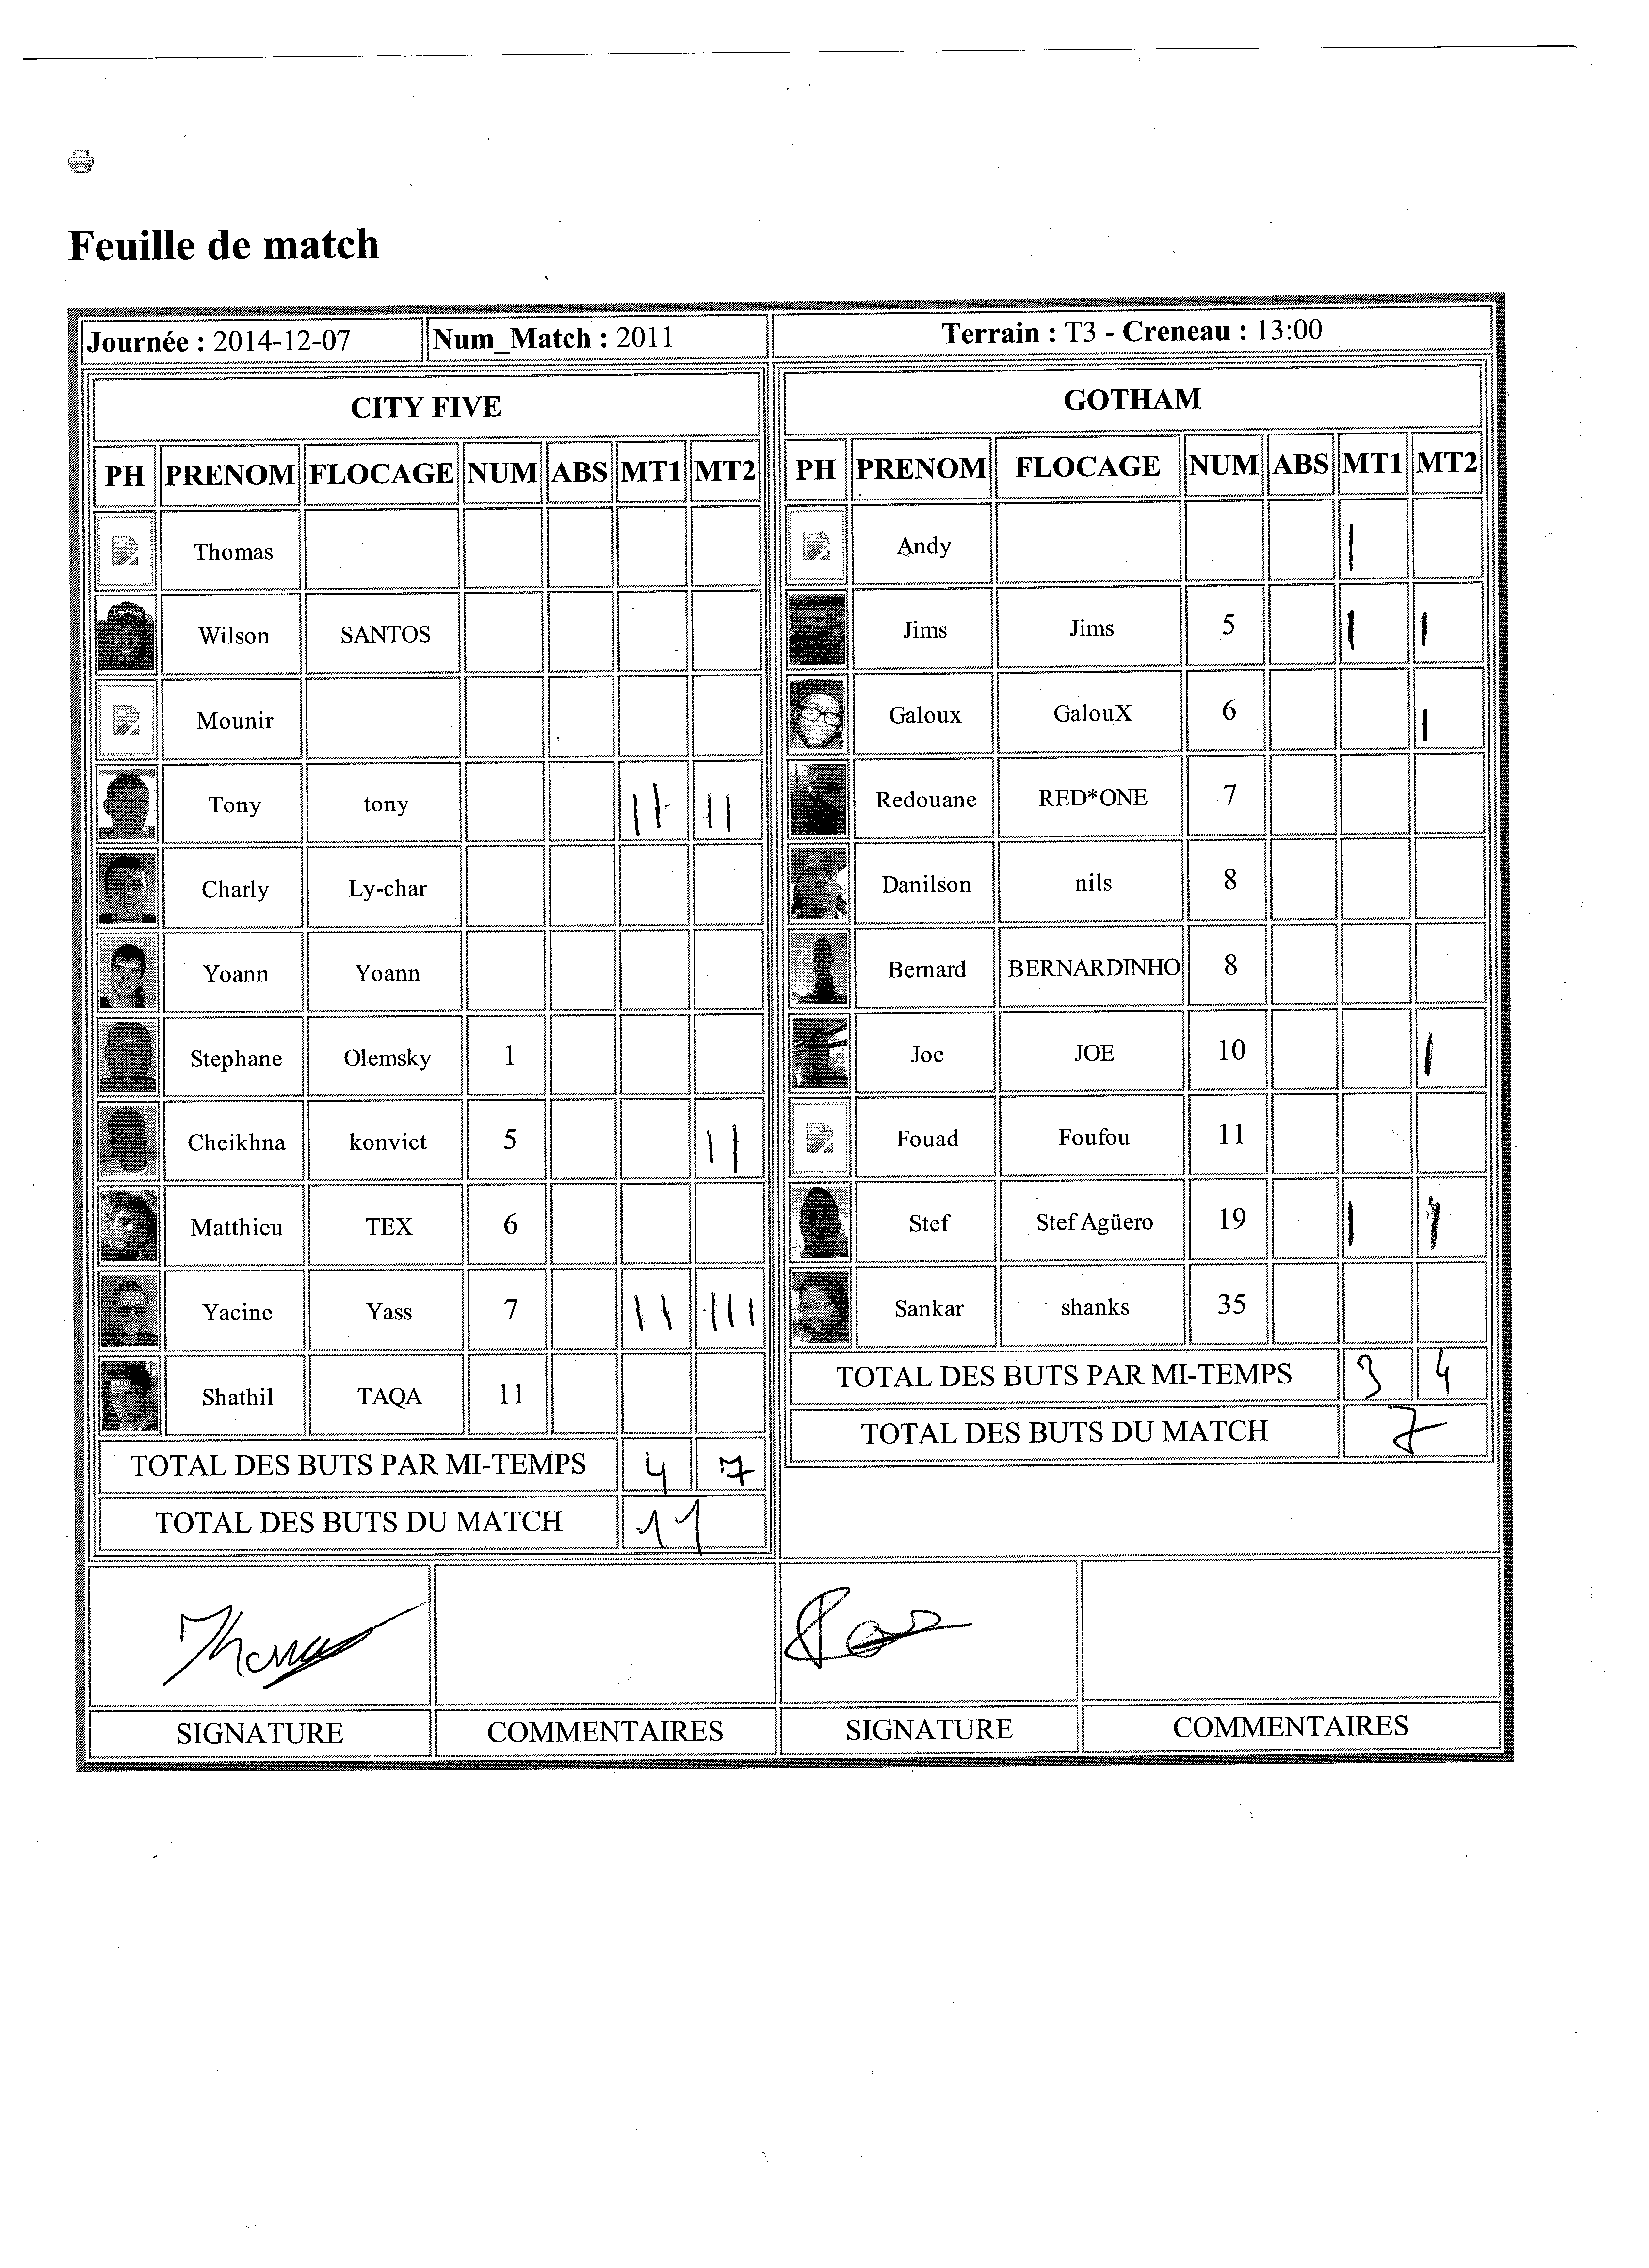 Feuille de match
Journée : 2014-12-07 Num_Match : 2011 Terrain : T3 - Creneau : 13:00
CITY FIVE
PH PRENOM FLOCAGE NUM ABS MT1 MT2
Thomas
Wilson SANTOS
Mounir
Tony tony || ||
Charly Ly-char
Yoann Yoann
Stephane Olemsky 1
Cheikhna konvict 5 ||
Matthieu TEX 6
Yacine Yass 7 || |||
Shathil TAQA 11
TOTAL DES BUTS PAR MI-TEMPS 4 7
TOTAL DES BUTS DU MATCH 11
GOTHAM
PH PRENOM FLOCAGE NUM ABS MT1 MT2
Andy |
Jims Jims 5 | |
Galoux GalouX 6 |
Redouane RED*ONE 7
Danilson nils 8
Bernard BERNARDINHO 8
Joe JOE 10 |
Fouad Foufou 11
Stef Stef Agüero 19 | |
Sankar shanks 35
TOTAL DES BUTS PAR MI-TEMPS 3 4
TOTAL DES BUTS DU MATCH 7
SIGNATURE COMMENTAIRES SIGNATURE COMMENTAIRES